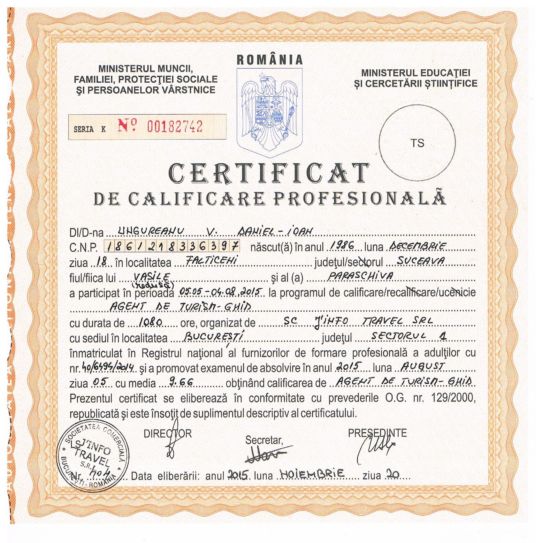 ROMÂNIA
MINISTERUL MUNCII,
FAMILIEI, PROTECŢIEI SOCIALE
ŞI PERSOANELOR VÂRSTNICE
MINISTERUL EDUCAŢIEI
ŞI CERCETĂRII ŞTIINŢIFICE
SERIA K Nº 00182742
TS
CERTIFICAT
DE CALIFICARE PROFESIONALĂ
Dl/D-na UNGUREANU V. DANIEL-IOAN
C.N.P. 1861218336397 născut(ă) în anul 1986 luna DECEMBRIE
ziua 18 în localitatea FALTICENI judeţul/sectorul SUCEAVA
fiul/fiica lui VASILE şi al (a) PARASCHIVA
(redusă)
a participat în perioada 05.05-04.08.2015 la programul de calificare/recalificare/ucenicie
AGENT DE TURISM-GHID
cu durata de 1080 ore, organizat de SC J'INFO TRAVEL SRL
cu sediul în localitatea BUCUREŞTI judeţul SECTORUL 1
înmatriculat în Registrul naţional al furnizorilor de formare profesională a adulţilor cu
nr. 40/6494/2014 şi a promovat examenul de absolvire în anul 2015 luna AUGUST
ziua 05 cu media 9.66 obţinând calificarea de AGENT DE TURISM-GHID
Prezentul certificat se eliberează în conformitate cu prevederile O.G. nr. 129/2000,
republicată şi este însoţit de suplimentul descriptiv al certificatului.
DIRECTOR Secretar, PREŞEDINTE
SOCIETATEA COMERCIALĂ
J'INFO
TRAVEL
S.R.L.
BUCUREŞTI - ROMANIA
Nr. 404 Data eliberării: anul 2015 luna NOIEMBRIE ziua 20